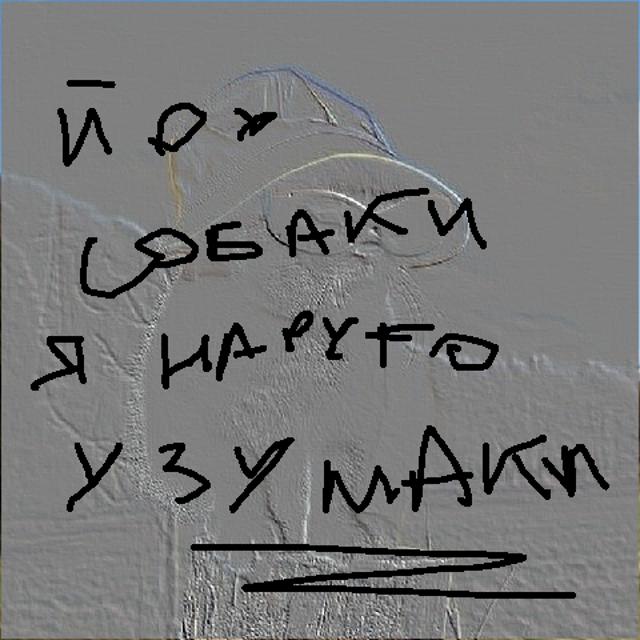 йоу
собаки
я наруто
узумаки